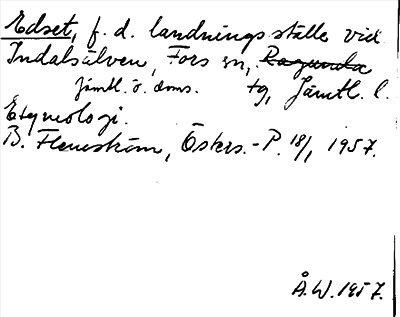 Edset, f. d. landningsställe vid
Indalsälven, Fors sn, Ragunda
jämtl. ö. doms. tg, Jämtl. l.
Etymologi.
B. Flemström, Östers.-P. 18/1, 1957.
Å.W. 1957.